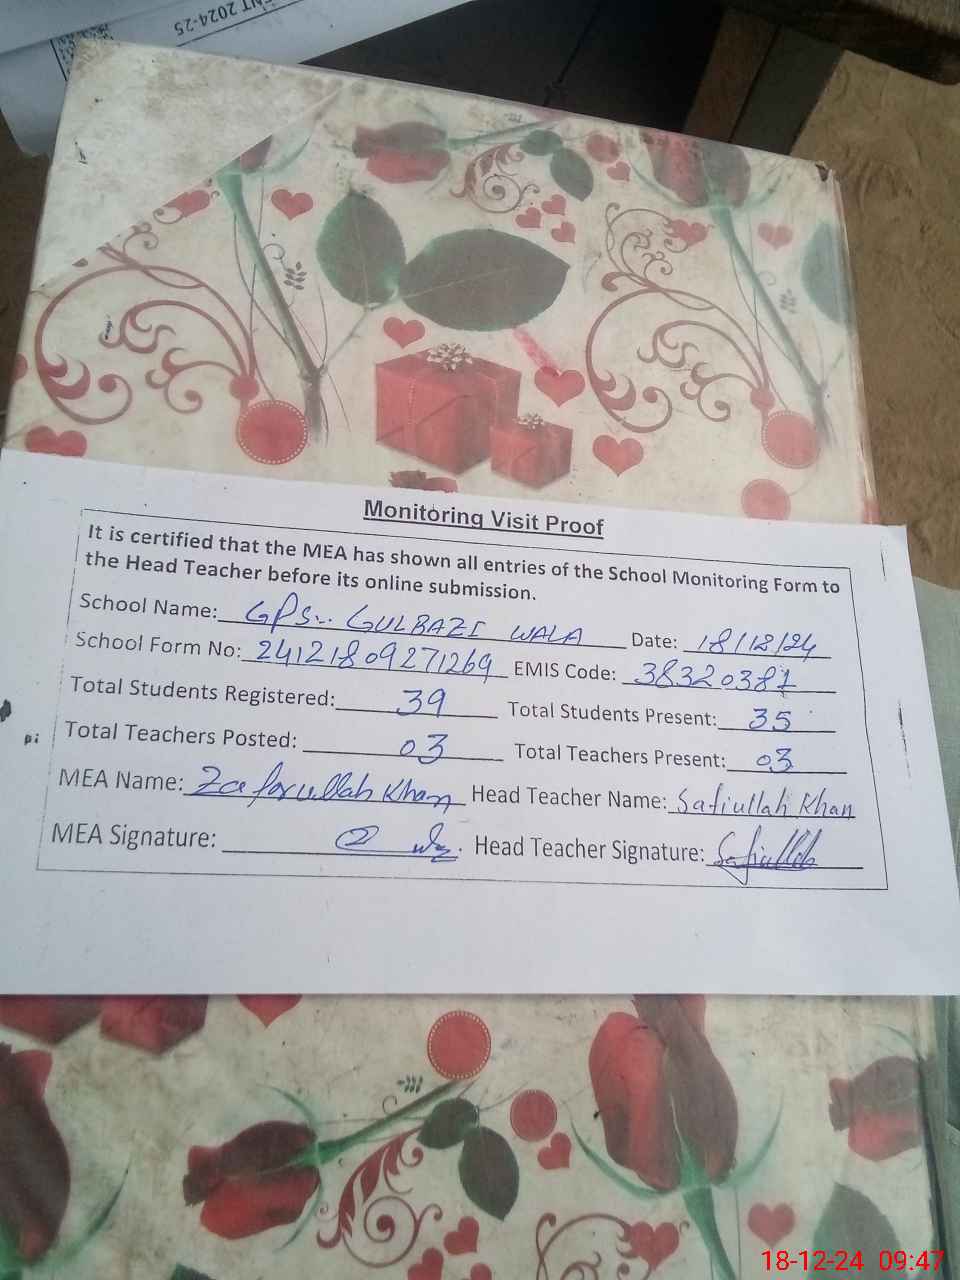 NT 2024-25
Monitoring Visit Proof
It is certified that the MEA has shown all entries of the School Monitoring Form to
the Head Teacher before its online submission.
School Name: GPS.. GULBAZI WALA Date: 18/12/24
School Form No: 24121809271269 EMIS Code: 38320387
Total Students Registered: 39 Total Students Present: 35
Total Teachers Posted: 03 Total Teachers Present: 03
MEA Name: Zafarullah Khan Head Teacher Name: Safiullah Khan
MEA Signature: Head Teacher Signature: Safiullah
18-12-24 09:47